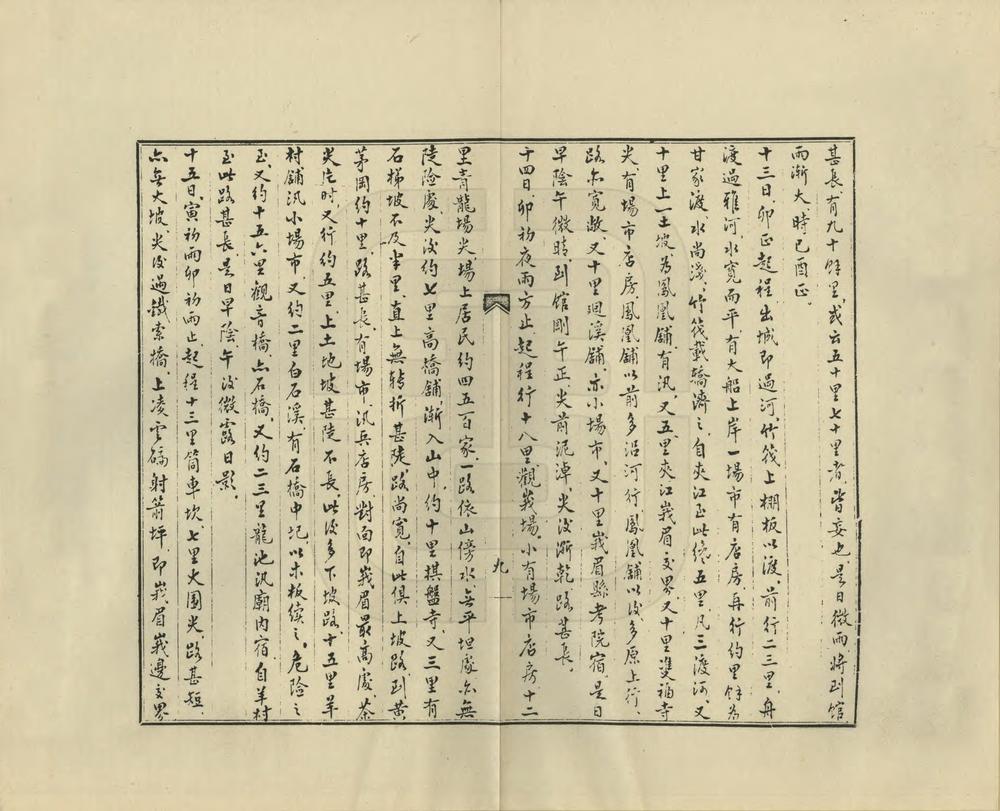 甚長有九十餘里或云五十里七十里者皆妄也是日微雨將到館
雨漸大時已酉正。
十三日卯正起程出城即過河竹筏上棚板以渡前行二三里舟
渡過雅河水寬而平有大船上岸一場市有店房再行約里餘為
甘家渡水尚淺竹筏載轎濟之自夾江至此纔五里凡三渡河又
十里上一土坡為鳳凰舖有汛又五里夾江峩眉交界又十里雙福寺
尖有場市店房鳳凰舖以前多沿河行鳳凰舖以後多原上行
路尒寬敞又十里迴溪舖亦小場市又十里峩眉縣考院宿是日
早陰午微晴到館剛午正尖前泥淖尖後漸乾路甚長。
十四日卯初夜雨方止起程行十八里觀峩場小有場市店房十二
九
里青龍場尖場上居民約四五百家一路依山傍水無平坦處尒無
陡險處尖後約七里高橋舖漸入山中約十里棋盤寺又三里有
石梯坡不及半里直上無轉折甚陡路尚寬自此俱上坡路到黃
茅岡約十里路甚長有場市汛兵店房對面即峩眉最高處茶
尖片時又行約五里上土地坡甚陡不長此後多下坡路十五里羊
村舖汛小場市又約二里白石溪有石橋中圮以木板續之危險之
至又約十五六里觀音橋亦石橋又約二三里龍池汛廟內宿自羊村
至此路甚長是日早陰午後微露日影。
十五日寅初雨卯初雨止起程十三里筒車坎七里火圍尖路甚短
亦無大坡尖後過鐵索橋上凌雲磴射箭坪即峩眉峩邊交界